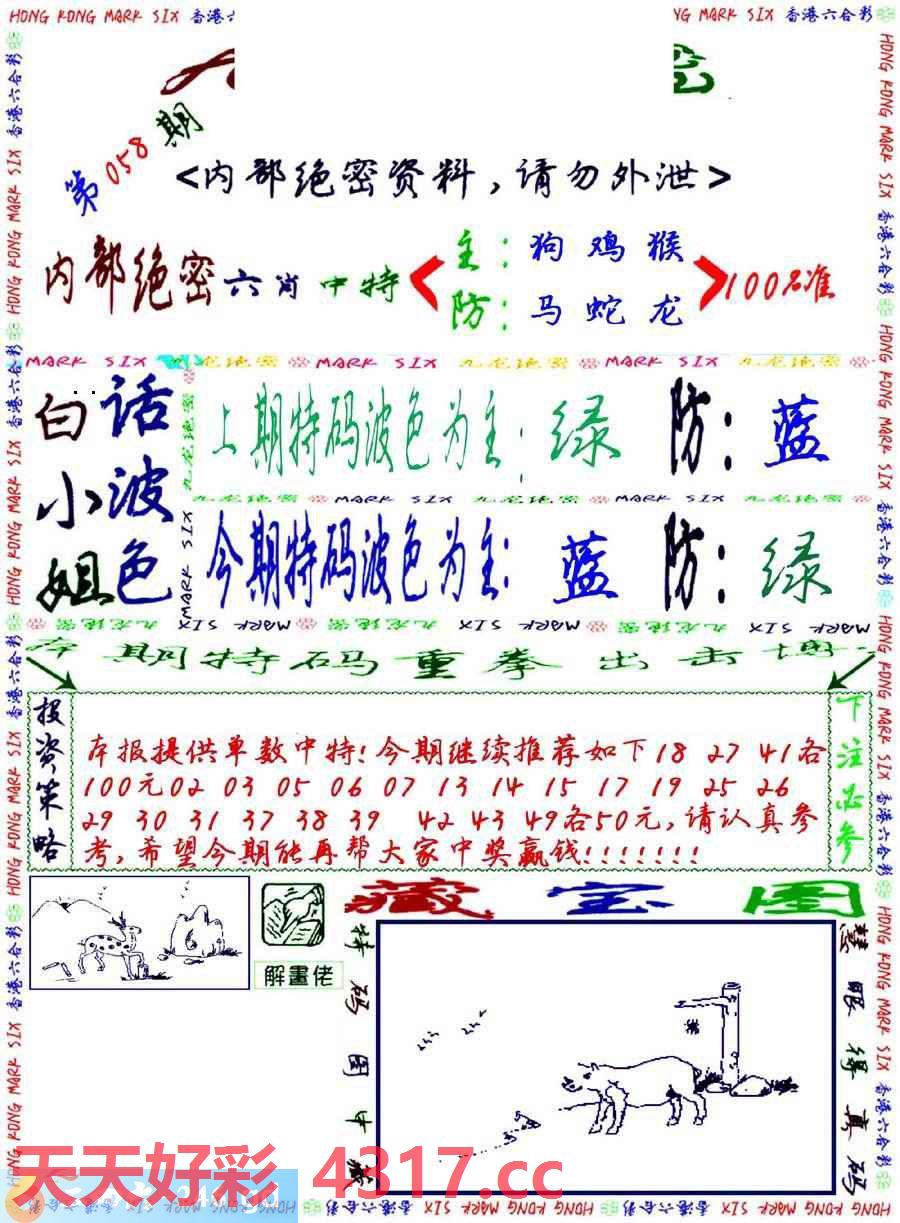 HONG KONG MARK SIX 香港六合彩
第058期
<内部绝密资料,请勿外泄>
内部绝密六肖中特
主:狗鸡猴
防:马蛇龙
100%准
MARK SIX 九龙绝密 MARK SIX 九龙绝密 MARK SIX 九龙绝密
白小姐
话波色
上期特码波色为主:绿 防:蓝
九龙绝密 MARK SIX 九龙绝密 MARK SIX 九龙绝密
今期特码波色为主:蓝 防:绿
本期特码重拳出击
投资策略
本报提供单数中特!今期继续推荐如下18 27 41各
100元02 03 05 06 07 13 14 15 17 19 25 26
29 30 31 37 38 39 42 43 49各50元,请认真参
考,希望今期能再帮大家中奖赢钱!!!!!!!
下注必参
藏宝图
解畫佬
特码图中藏
慧眼得真码
天天好彩 4317.cc
HONG KONG MARK SIX 香港六合彩